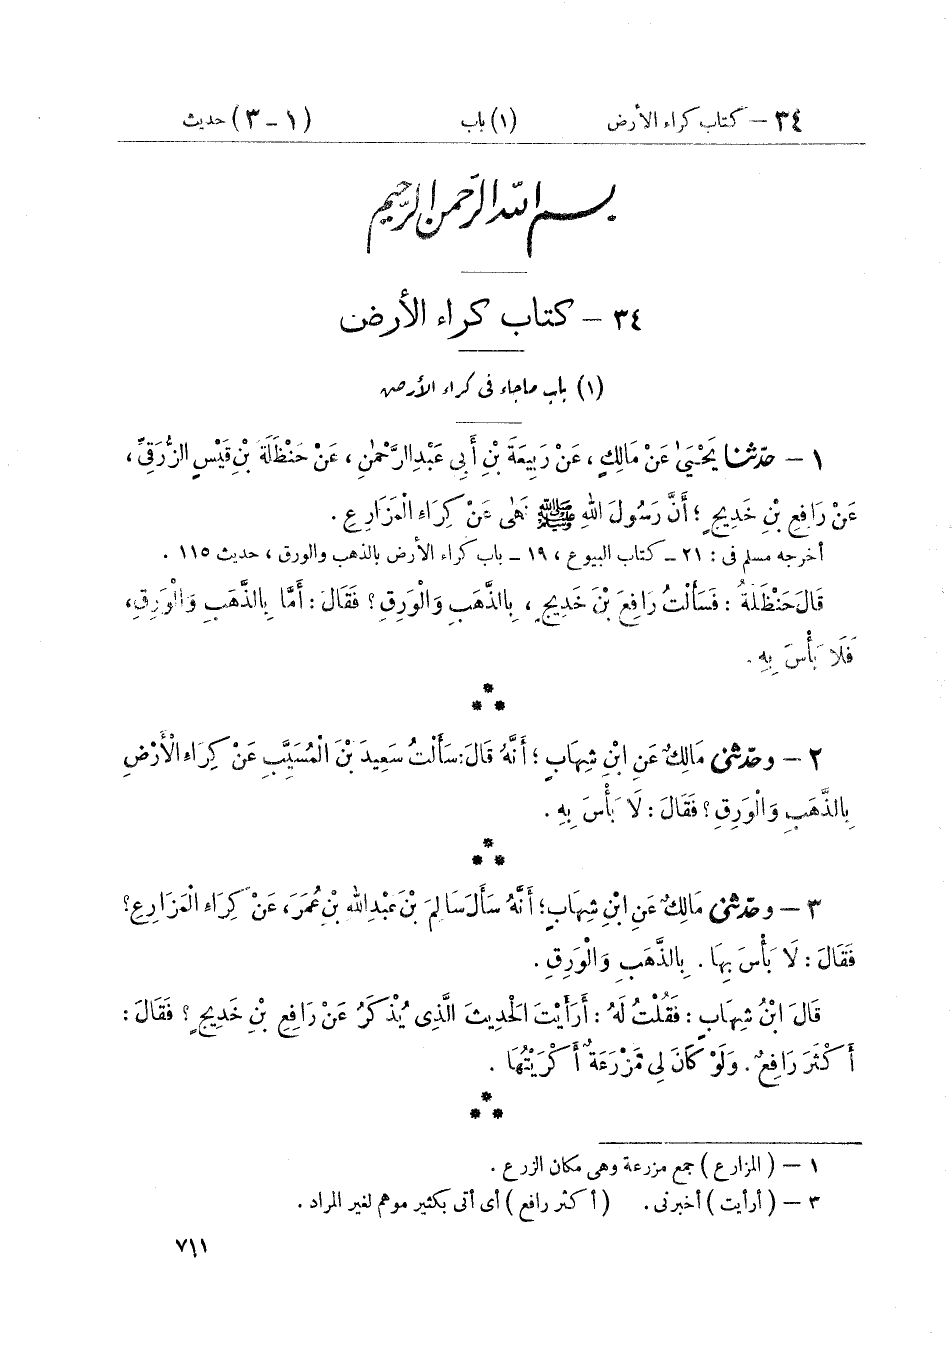 ٣٤ – كتاب كراء الأرض (١) باب (١ – ٣) حديث
بسم الله الرحمن الرحيم
٣٤ – كتاب كراء الأرض
(١) باب ماجاء فى كراء الأرض
١ – حدّثنا يَحْيَىٰ عَنْ مَالِكٍ، عَنْ رَبِيعَةَ بْنِ أَبِى عَبْدِ الرَّحْمٰنِ، عَنْ حَنْظَلَةَ بْنِ قَيْسٍ الزُّرَقِىِّ،
عَنْ رَافِعِ بْنِ خَدِيجٍ؛ أَنَّ رَسُولَ اللهِ ﷺ نَهَى عَنْ كِرَاءِ الْمَزَارِعِ.
أخرجه مسلم فى: ٢١ – كتاب البيوع، ١٩ – باب كراء الأرض بالذهب والورق، حديث ١١٥.
قَالَ حَنْظَلَةُ: فَسَأَلْتُ رَافِعَ بْنَ خَدِيجٍ، بِالذَّهَبِ وَالْوَرِقِ؟ فَقَالَ: أَمَّا بِالذَّهَبِ وَالْوَرِقِ،
فَلَا بَأْسَ بِهِ.
***
٢ – وحدّثنى مَالِكٌ عَنِ ابْنِ شِهَابٍ؛ أَنَّهُ قَالَ: سَأَلْتُ سَعِيدَ بْنَ الْمُسَيَّبِ عَنْ كِرَاءِ الْأَرْضِ
بِالذَّهَبِ وَالْوَرِقِ؟ فَقَالَ: لَا بَأْسَ بِهِ.
***
٣ – وحدّثنى مَالِكٌ عَنِ ابْنِ شِهَابٍ؛ أَنَّهُ سَأَلَ سَالِمَ بْنَ عَبْدِ اللهِ بْنِ عُمَرَ، عَنْ كِرَاءِ الْمَزَارِعِ؟
فَقَالَ: لَا بَأْسَ بِهَا. بِالذَّهَبِ وَالْوَرِقِ.
قَالَ ابْنُ شِهَابٍ: فَقُلْتُ لَهُ: أَرَأَيْتَ الْحَدِيثَ الَّذِى يُذْكَرُ عَنْ رَافِعِ بْنِ خَدِيجٍ؟ فَقَالَ:
أَكْثَرَ رَافِعٌ. وَلَوْ كَانَ لِى مَزْرَعَةٌ أَكْرَيْتُهَا.
***
١ – (المزارع) جمع مزرعة وهى مكان الزرع.
٣ – (أرأيت) أخبرنى. (أكثر رافع) أى أتى بكثير موهم لغير المراد.
٧١١